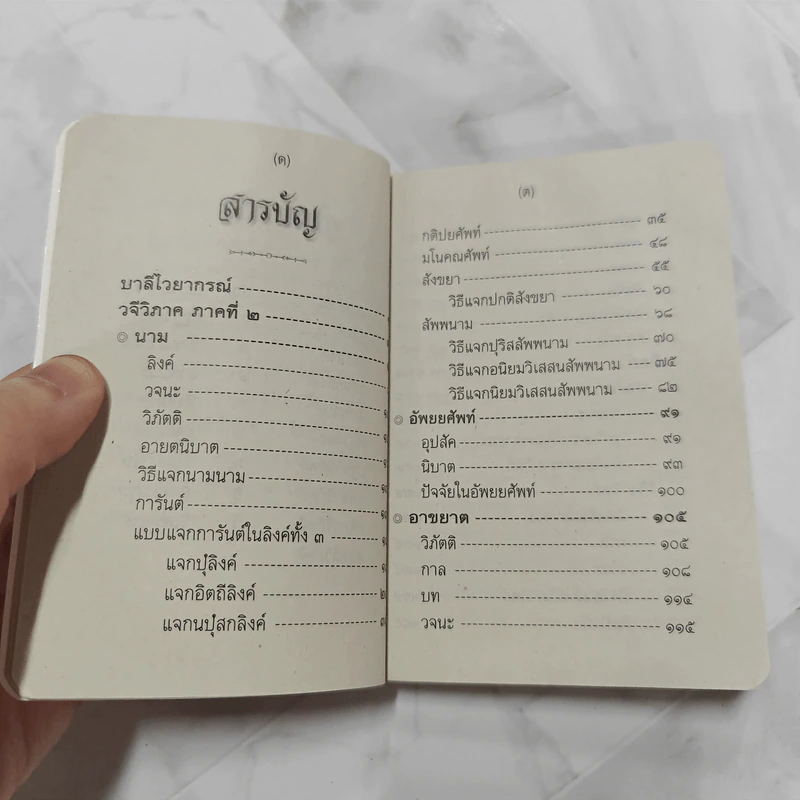 (ด)
สารบัญ
บาลีไวยากรณ์
วจีวิภาค ภาคที่ ๒
๏ นาม
ลิงค์
วจนะ
วิภัตติ
อายตนิบาต
วิธีแจกนามนาม
การันต์
แบบแจกการันต์ในลิงค์ทั้ง ๓
แจกปุํลิงค์
แจกอิตถีลิงค์
แจกนปุํสกลิงค์
(ต)
กติปยศัพท์ ๓๕
มโนคณศัพท์ ๔๘
สังขยา ๕๕
วิธีแจกปกติสังขยา ๖๐
สัพพนาม ๖๘
วิธีแจกปุริสสัพพนาม ๗๐
วิธีแจกอนิยมวิเสสนสัพพนาม ๗๕
วิธีแจกนิยมวิเสสนสัพพนาม ๘๒
๏ อัพยยศัพท์ ๙๑
อุปสัค ๙๑
นิบาต ๙๓
ปัจจัยในอัพยยศัพท์ ๑๐๐
๏ อาขยาต ๑๐๕
วิภัตติ ๑๐๕
กาล ๑๐๘
บท ๑๑๔
วจนะ ๑๑๕